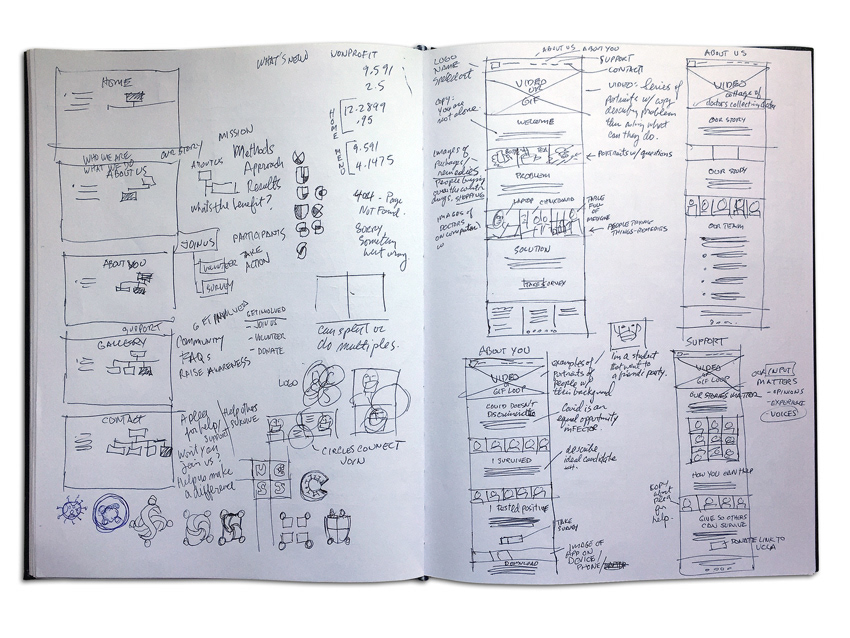 WHAT'S NEW
NONPROFIT
9.591
2.5
HOME
12.2899
.95
HOME
MENU
9.591
4.1475
MISSION
OUR STORY
WHO WE ARE
WHAT WE DO
ABOUT US
ABOUT US
Methods
Approach
Results
What's the benefit?
404 - Page
Not Found.
Sorry,
Something
went wrong
JOIN US
PARTICIPANTS
TAKE
ACTION
VOLUNTEER
SURVEY
ABOUT YOU
can split or
do multiples.
GET INVOLVED
GET INVOLVED
- JOIN US
- VOLUNTEER
- DONATE
SUPPORT
GALLERY
Community
FAQs
RAISE AWARENESS
LOGO
CONTACT
A plea
for help/
support
Help others
SURVIVE
Won't you
join us?
Help us make
a difference
CIRCLES CONNECT
JOIN
LOGO
NAME
ABOUT US ABOUT YOU
SUPPORT
CONTACT
VIDEO
OR
GIF
COPY:
You are
not alone.
WELCOME
VIDEO: Series of
portraits w/ copy
describing problem
then asking what
can they do.
Images of
PORTRAITS W/ QUESTIONS
PROBLEM
People buying
drugs, SHOPPING
LAPTOP
TABLE
FULL
OF
MEDICINE
IMAGES OF
DOCTORS
ON COMPUTERS
PEOPLE TAKING
THINGS - REMEDIES
SOLUTION
TAKE SURVEY
ABOUT US
VIDEO
collage of
doctors collecting data
OUR STORY
OUR STORY
OUR TEAM
ABOUT YOU
VIDEO
OR
GIF LOOP
examples of
Portraits of
people w/
their background
I'm a student
that went to
a friend's party.
COVID DOESN'T
Discriminate
Covid is an
equal opportunity
INFECTOR
I SURVIVED
describe
ideal candidate
I TESTED POSITIVE
TAKE
SURVEY
IMAGE OF
APP ON
DEVICE
PHONE/
DOWNLOAD
SUPPORT
VIDEO
OR
GIF LOOP
OUR STORIES MATTER
OUR INPUT
MATTERS
- OPINIONS
- EXPERIENCE
- VOICES
HOW YOU CAN HELP
COPY
about
for
help.
GIVE SO OTHERS
CAN SURVIVE
DONATE LINK TO
UCLA